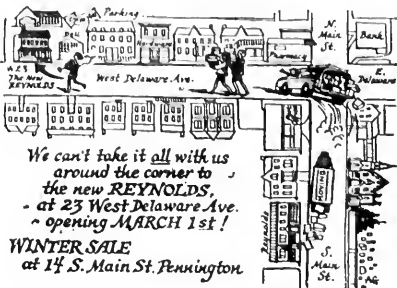 Parking
Deli
Hardware
Pharmacy
N.
Main
St.
Bank
# 23
The New
REYNOLDS
West Delaware Ave.
E.
Delaware
We can't take it all with us
around the corner to
the new REYNOLDS,
at 23 West Delaware Ave.
opening MARCH 1st!
WINTER SALE
at 14 S. Main St. Pennington
Reynolds
S.
Main
St.